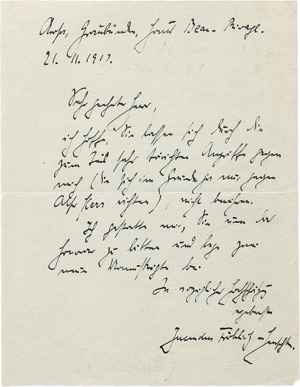 Arosa, Graubünden, Haus Beau-Rivage.
21. 11. 1917.
Sehr geehrter Herr,
ich hoffe, Sie lassen sich durch die
zum Teil sehr törichten Angriffe gegen
mich (die sich im Grunde ja nur gegen
Alfr. Kerr richten), nicht beirren.
Ich gestatte mir, Sie um das
Honorar zu bitten und lege zwei
neue Manuskripte bei.
In vorzüglicher Hochschätzung
ergebenst